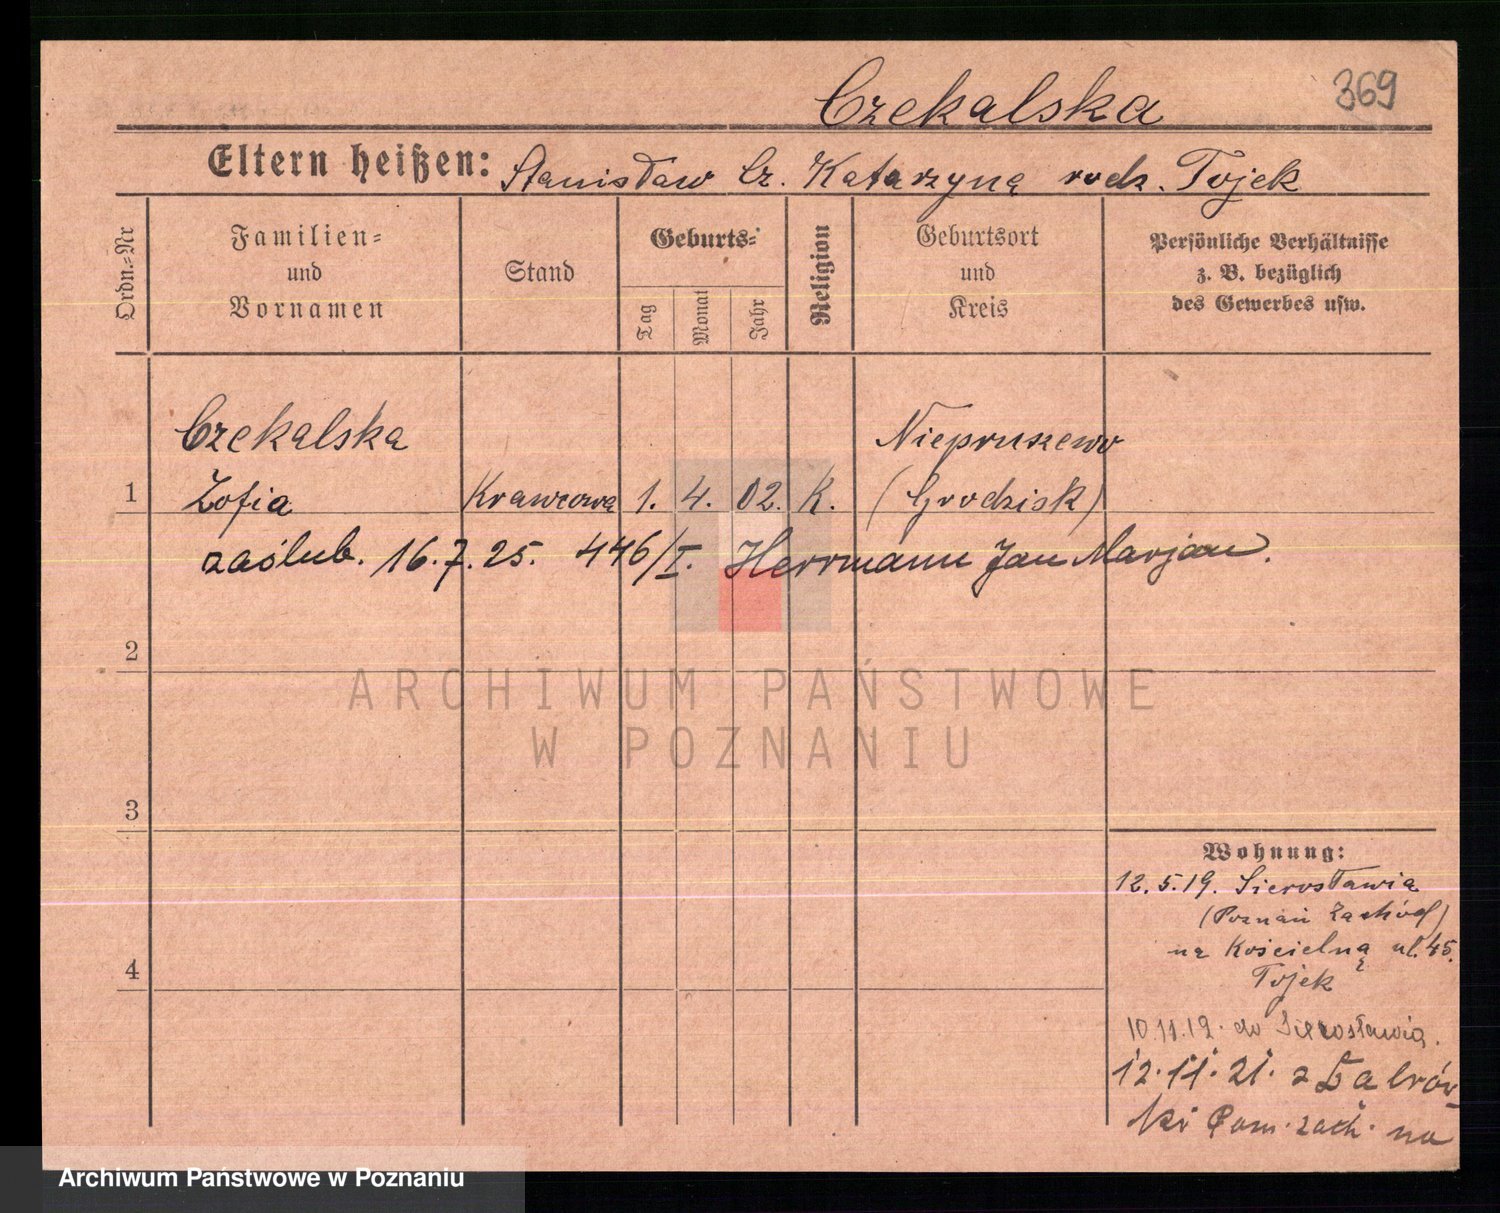 Czekalska
369
Eltern heißen: Stanisław Cz. Katarzyna rodz. Tojek
Ordn.=Nr
Familien=
und
Vornamen
Stand
Geburts=
Tag
Monat
Jahr
Religion
Geburtsort
und
Kreis
Persönliche Verhältnisse
z. B. bezüglich
des Gewerbes usw.
Czekalska
Niepruszewo
1 Zofia Krawcowa 1. 4. 02. K. (Grodzisk)
zaślub. 16.7.25. 446/I. Herrmann Jan Marjan.
2
ARCHIWUM PAŃSTWOWE
W POZNANIU
3
Wohnung:
12.5.19. Sierosławia
(Poznań Zachód)
na Kościelną ul. 45.
4
Tojek
10.11.19. do Sierosławia.
12.11.21. z
zach. na
Archiwum Państwowe w Poznaniu